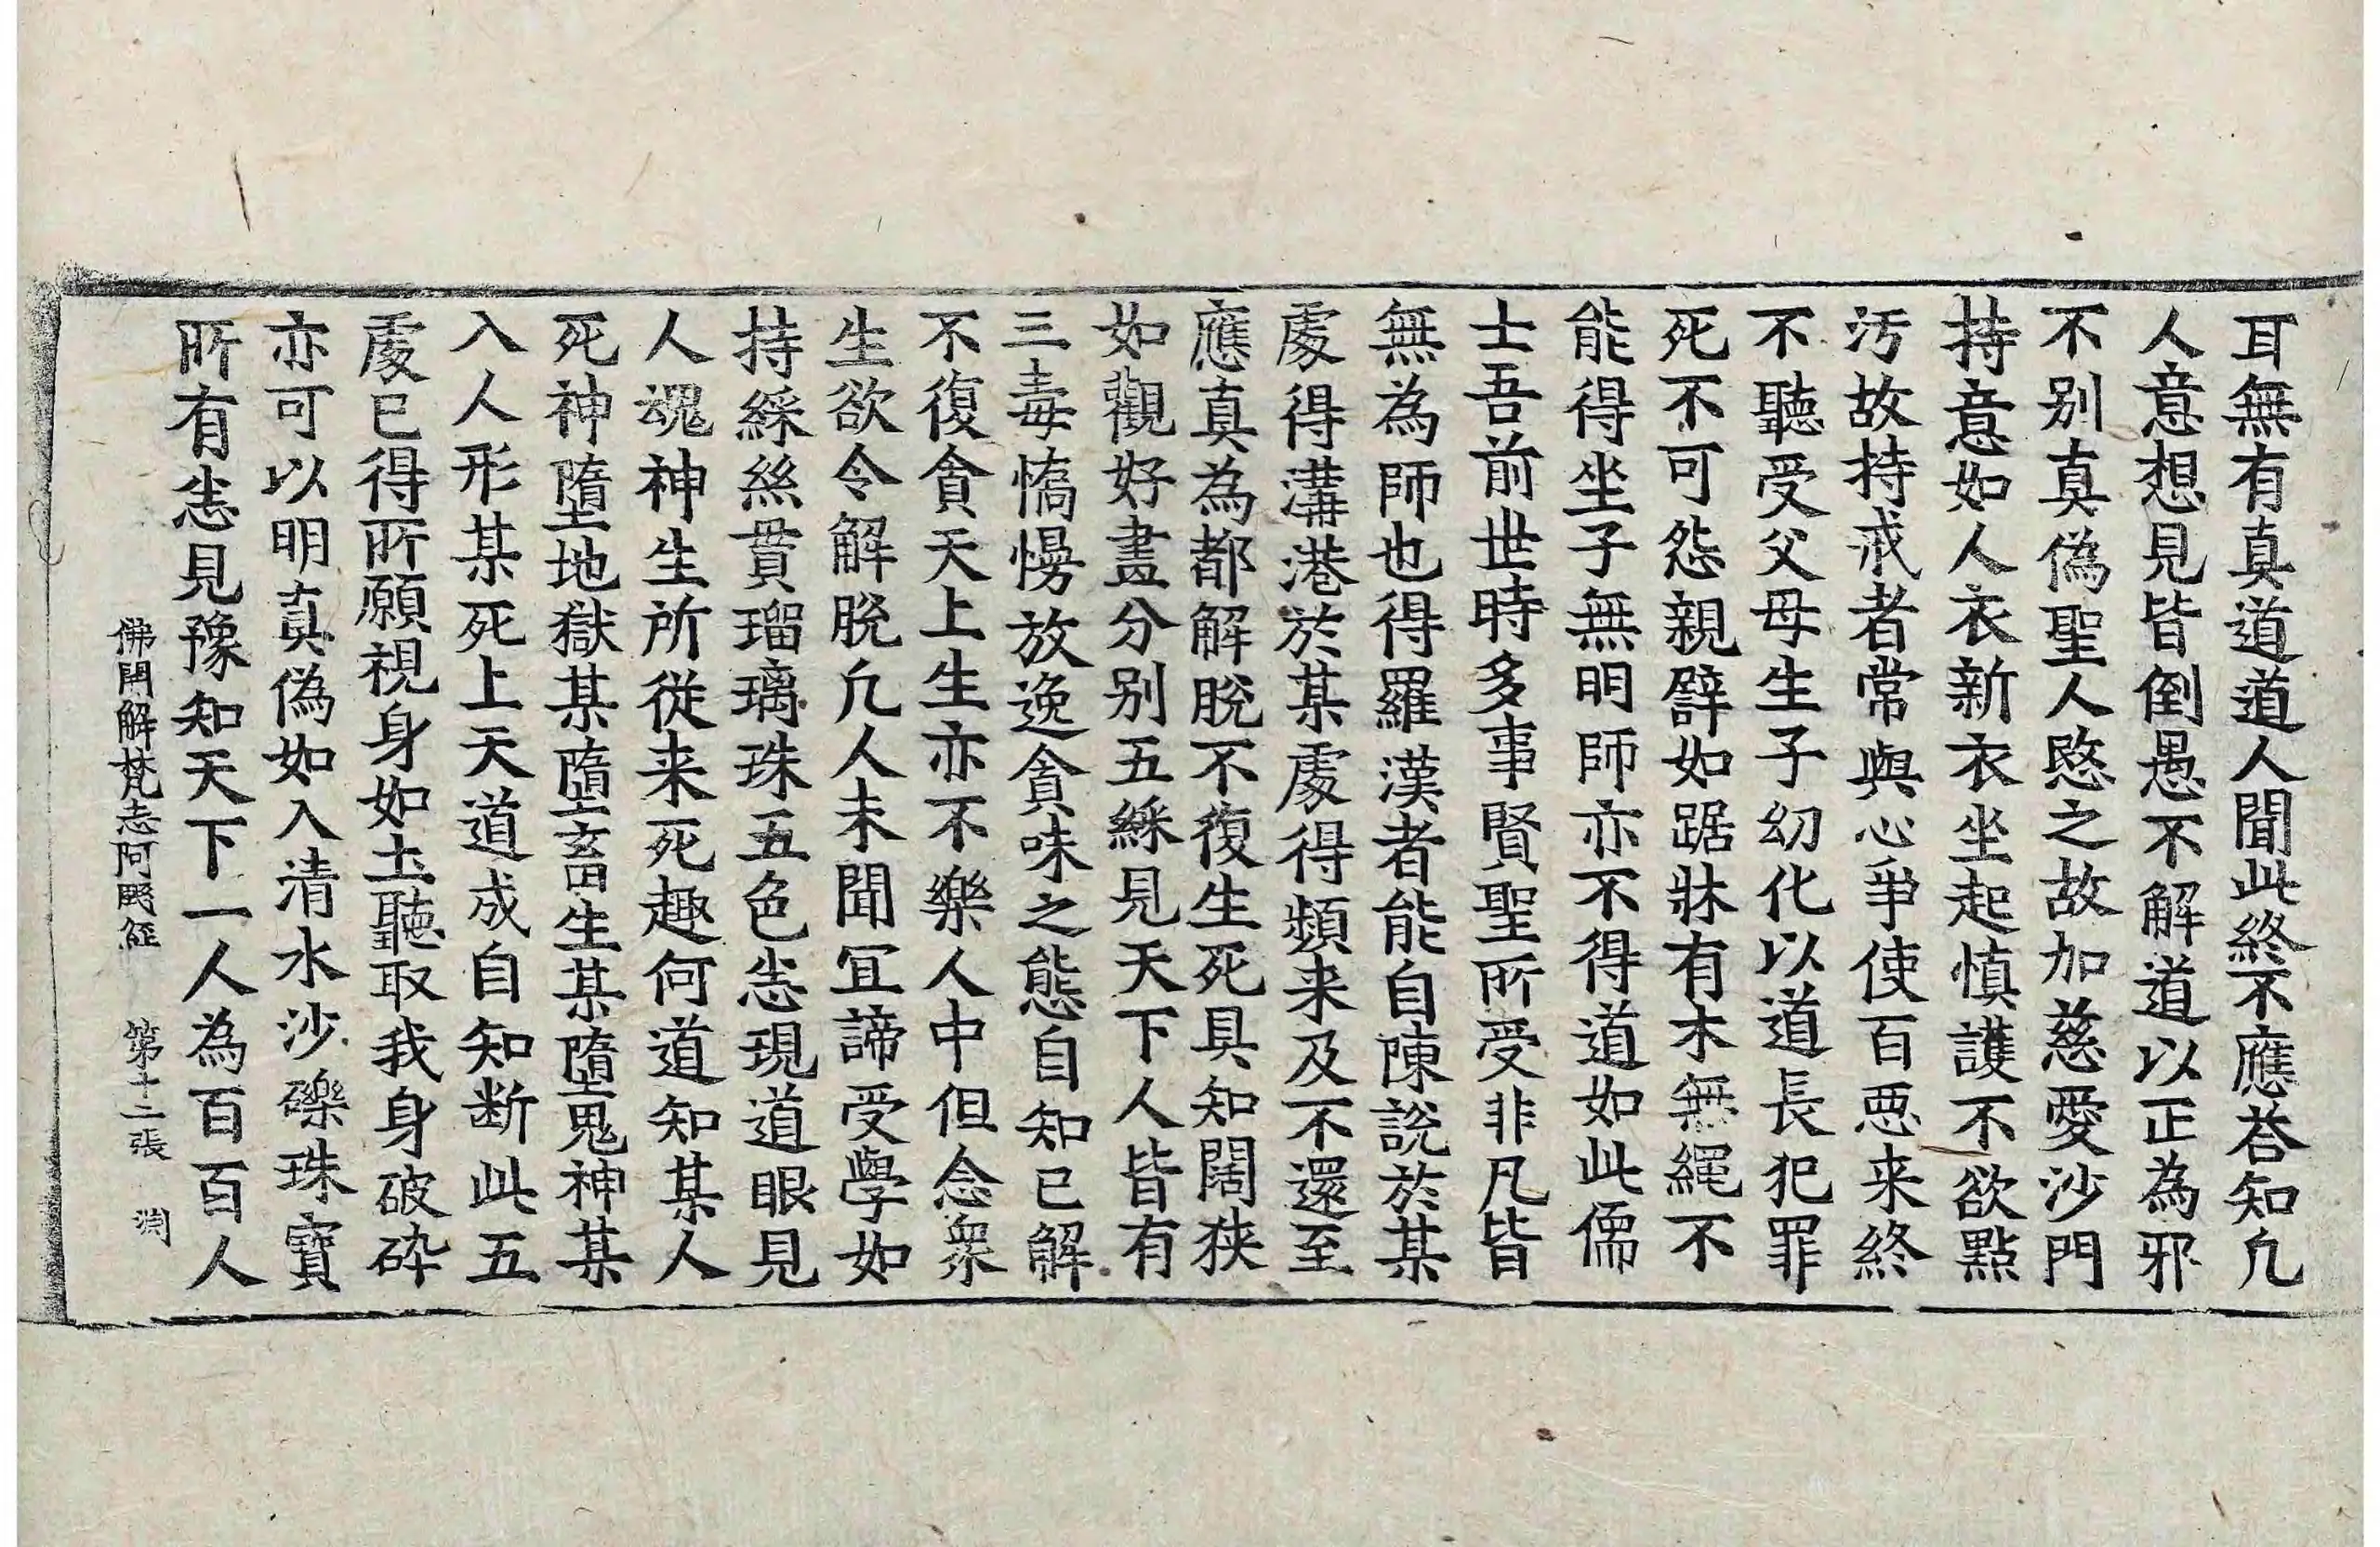 耳無有真道道人聞此終不應荅知凢
人意想見皆倒愚不解道以正為邪
不别真偽聖人愍之故加慈愛沙門
持意如人衣新衣坐起慎護不欲點
汚故持戒者常與心爭使百惡来終
不聽受父母生子幼化以道長犯罪
死不可怨親辟如踞牀有木無繩不
能得坐子無明師亦不得道如此儒
士吾前世時多事賢聖所受非凡皆
無為師也得羅漢者能自陳說於某
處得溝港於某處得頻来及不還至
應真為都解脫不復生死具知闊狹
如觀好畫分别五綵見天下人皆有
三毒憍慢放逸貪味之態自知已解
不復貪天上生亦不樂人中但念衆
生欲令解脫凢人未聞冝諦受學如
持綵絲貫瑠璃珠五色悉現道眼見
人魂神生所從来死趣何道知某人
死神墮地獄某墮畜生某墮鬼神某
入人形某死上天道成自知断此五
處已得所願視身如土聽取我身破碎
亦可以明真偽如入清水沙礫珠寶
所有悉見豫知天下一人為百百人
佛開解梵志阿颰経 第十二張 淵